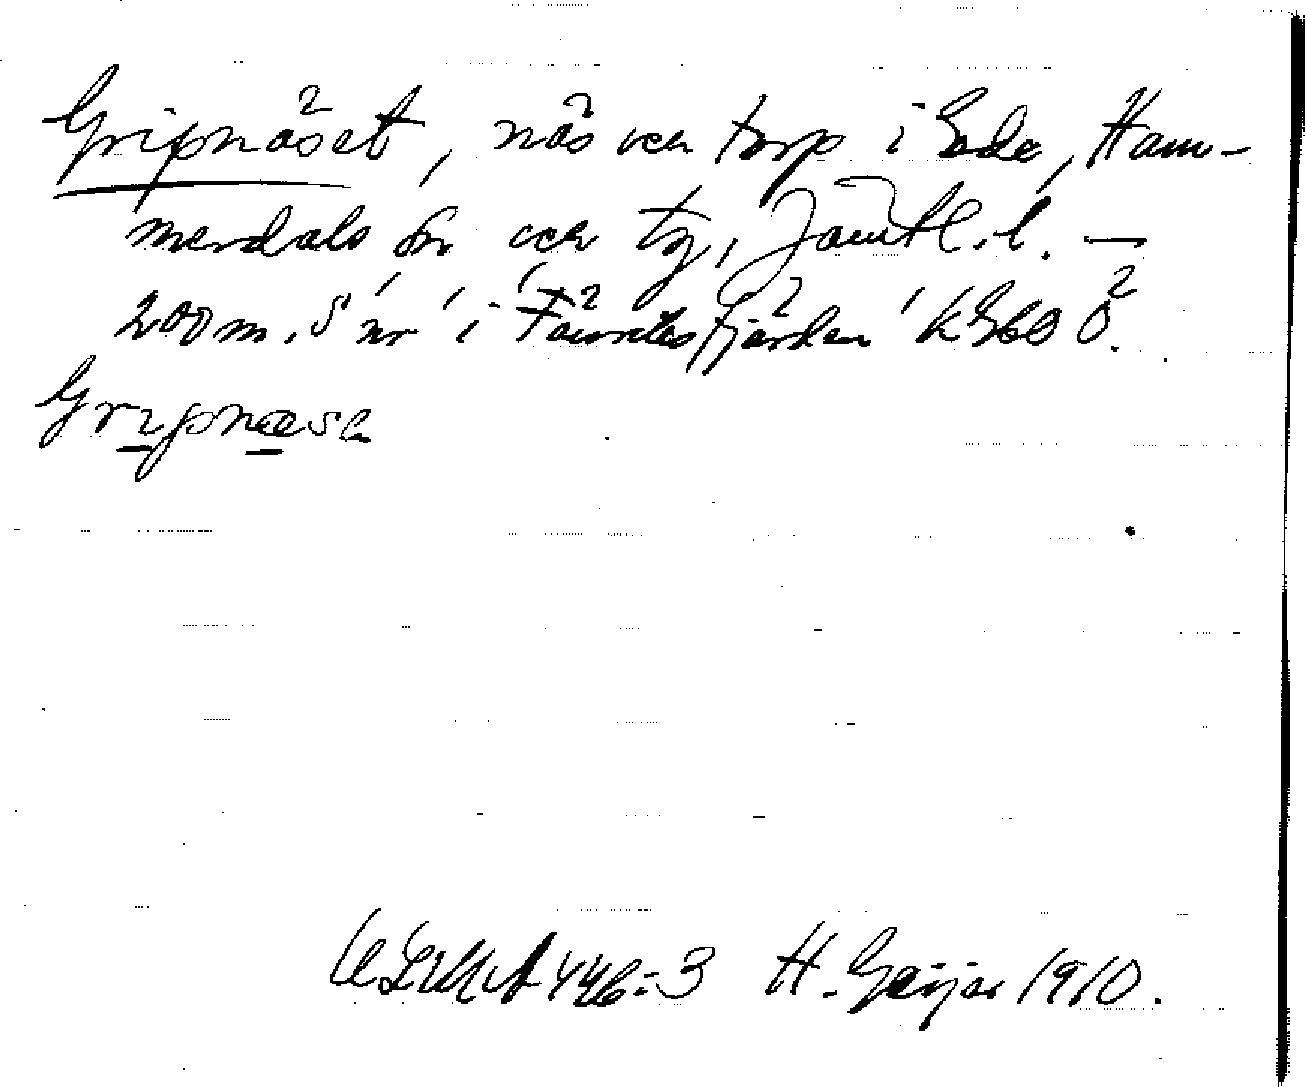 Gripnäset, näs och torp i Ede, Ham-
merdals sn och tg, Jämtl. l. —
200 m. S nr i Fjärden k 860 Ö.
Gripnæse
ULMA 446:3 H. Geijer 1910.